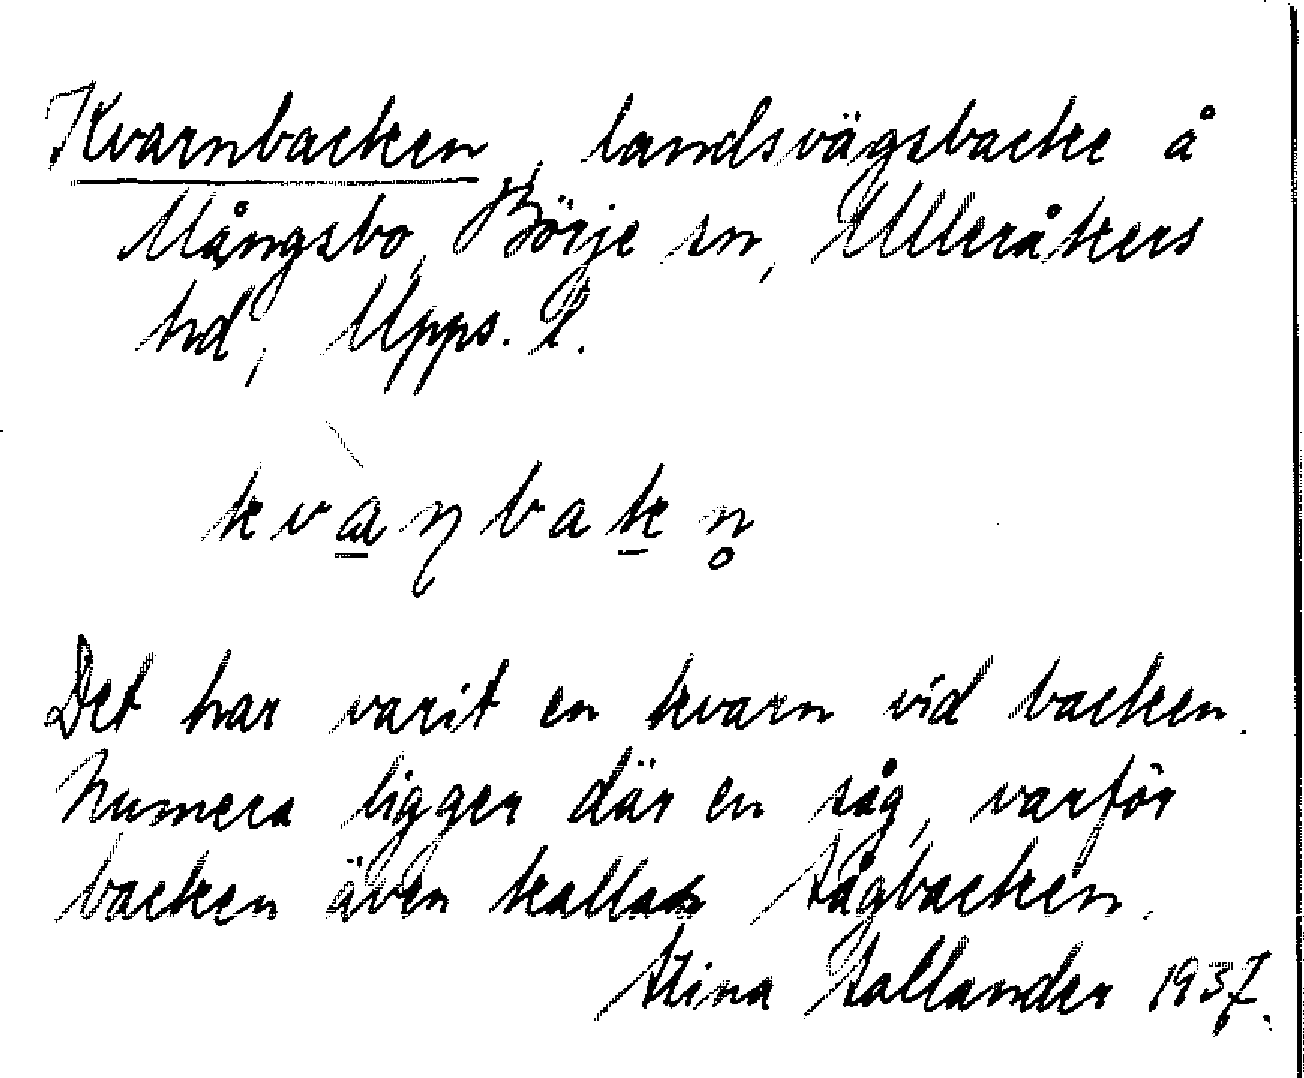 Kvarnbacken, landsvägsbacke å
Mångsbo, Börje sn, Ulleråkers
hd, Upps. l.
kvàɳbakn̥
Det har varit en kvarn vid backen.
Numera ligger där en såg, varför
backen även kallas Sågbacken.
Stina Sallander 1937.